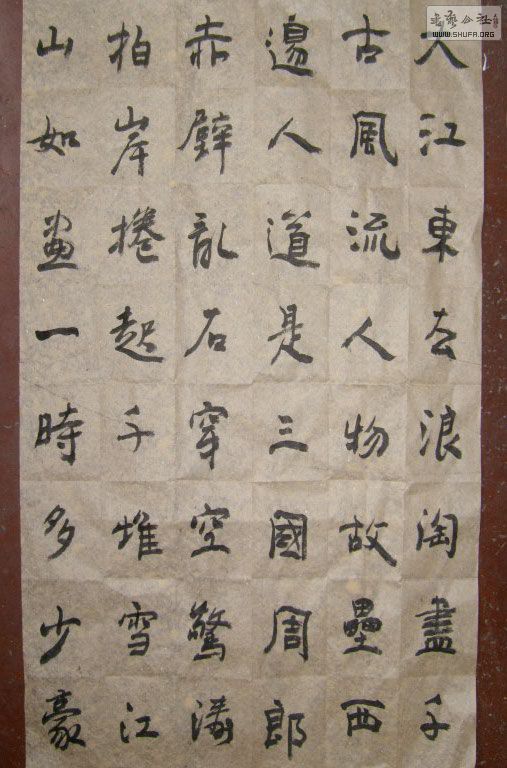 大江東去浪淘盡千
古風流人物故壘西
邊人道是三國周郎
赤壁亂石穿空驚濤
拍岸捲起千堆雪江
山如畫一時多少豪
书艺公社
WWW.SHUFA.ORG